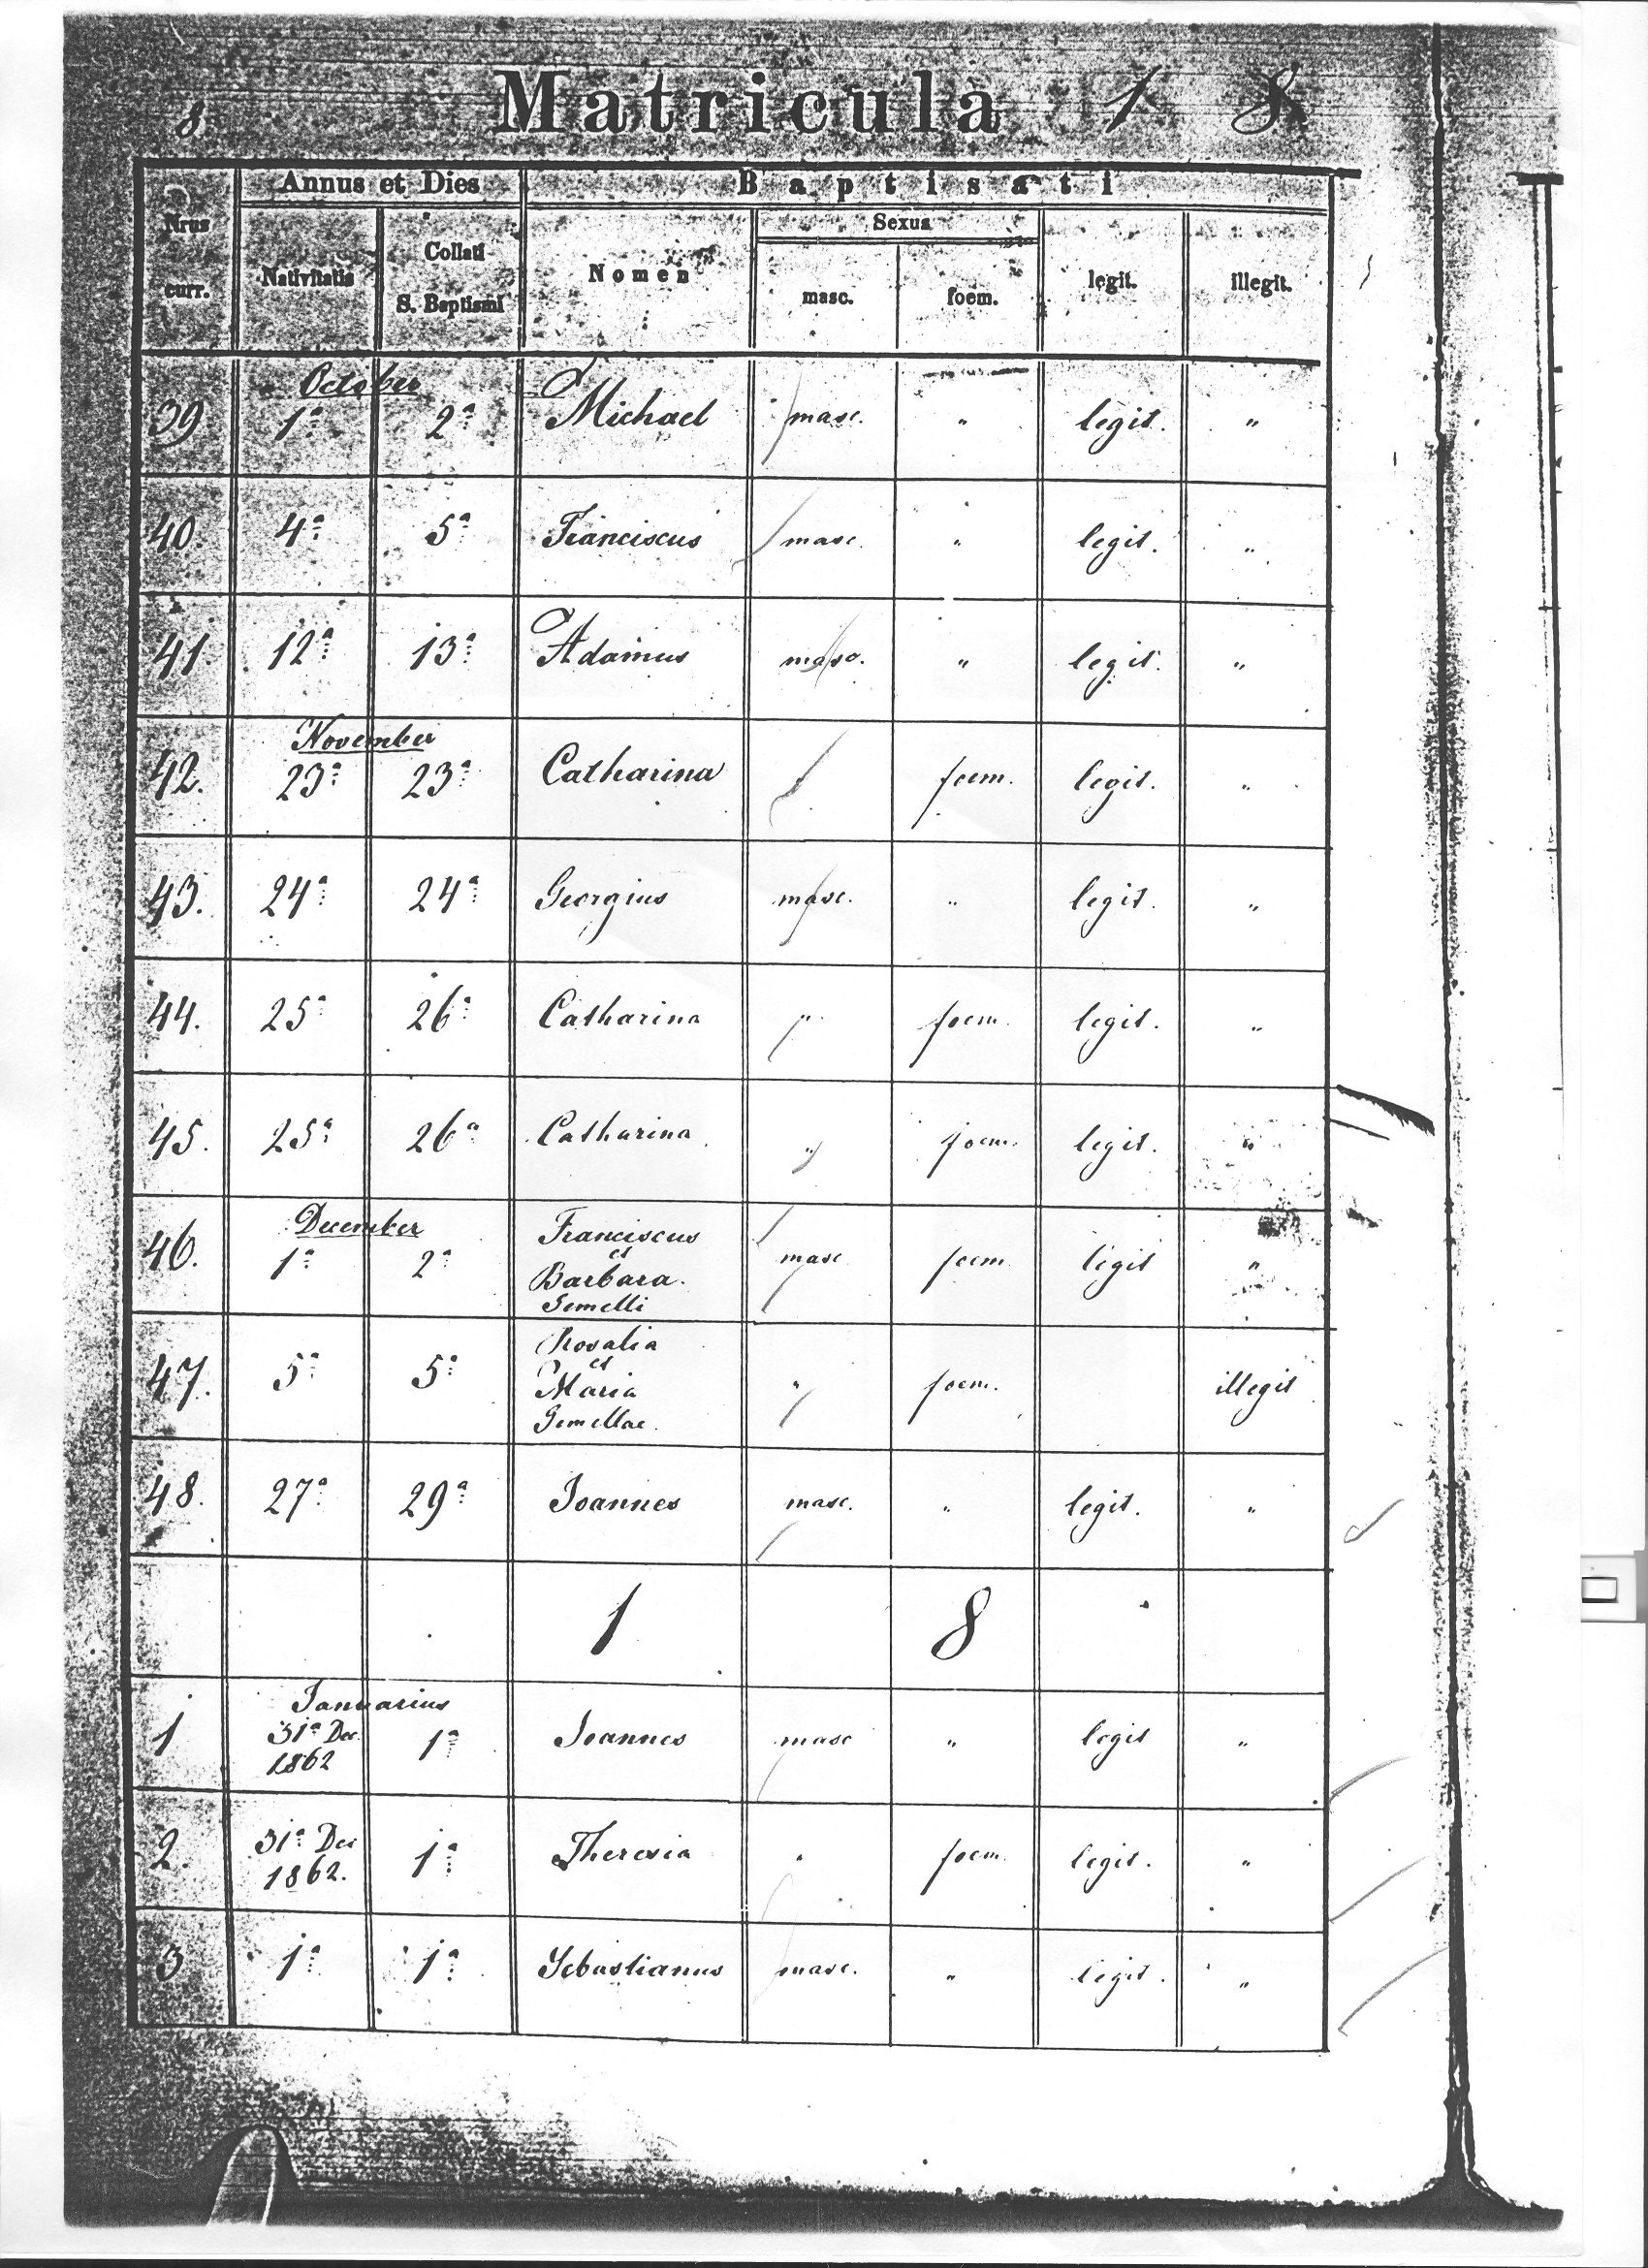 8 Matricula 1 8
Annus et Dies Baptisati
Nrus curr. Nativitatis Collati S. Baptismi Nomen Sexus masc. foem. legit. illegit.
October
39 1ª 2ª Michael masc. " legit. "
40. 4ª 5ª Franciscus masc. " legit. "
41. 12ª 13ª Adamus masc. " legit. "
November
42. 23ª 23ª Catharina foem. legit. "
43. 24ª 24ª Georgius masc. " legit. "
44. 25ª 26ª Catharina " foem. legit. "
45. 25ª 26ª Catharina " foem. legit. "
December
46. 1ª 2ª Franciscus et Barbara. Gemelli masc foem legit "
47. 5ª 5ª Rosalia et Maria Gemellae. " foem. illegit
48. 27ª 29ª Joannes masc. " legit. "
1 8
Januarius
1 31ª Dec. 1862 1ª Joannes masc " legit "
2. 31ª Dec 1862. 1ª Theresia " foem. legit. "
3 1ª 1ª Sebastianus masc. " legit. "